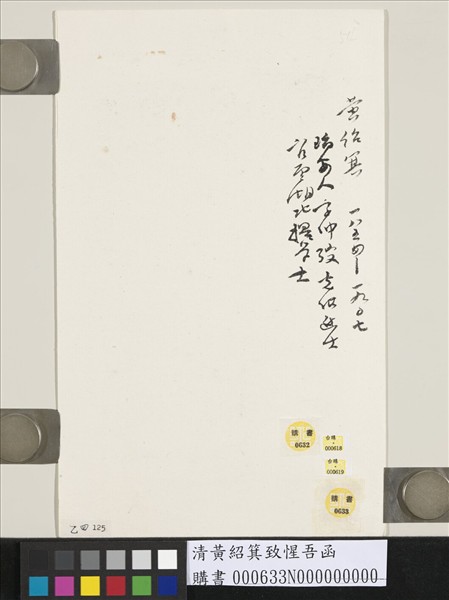 黃紹箕 一八五四—一九〇七
瑞安人字仲弢光緒進士
官至湖北提学士
購書
0632
000618
000619
購書
0633
125
清黃紹箕致惺吾函
購書 000633N000000000